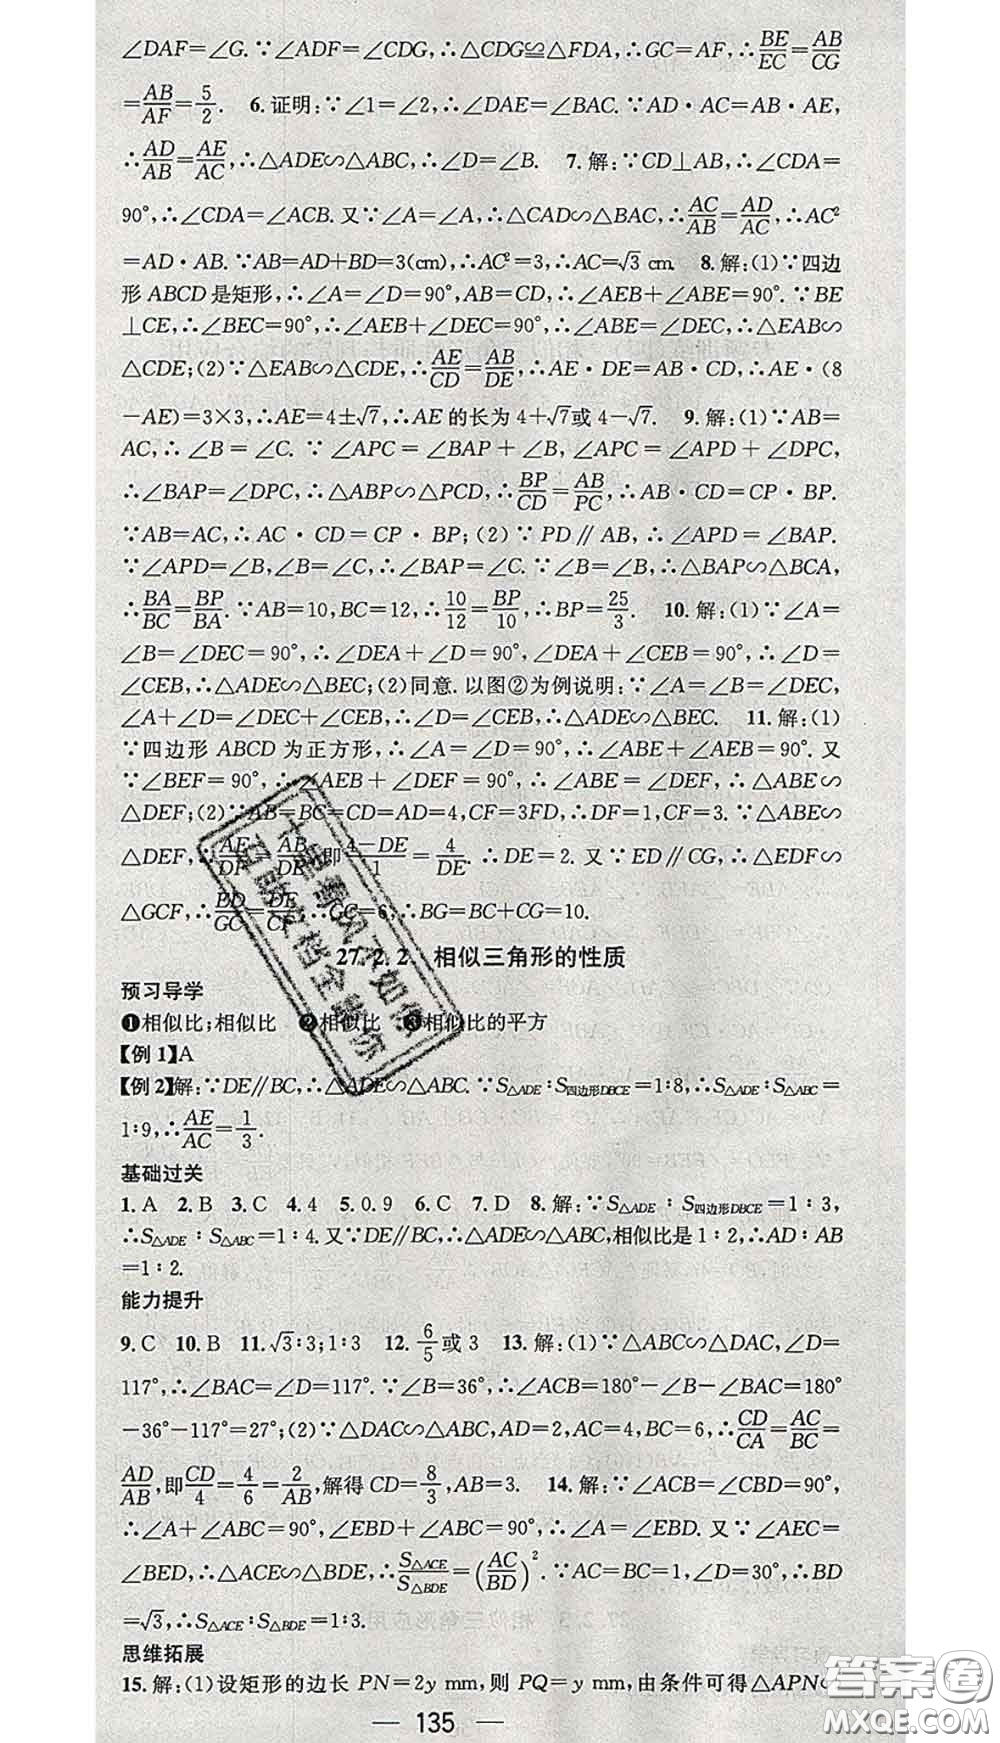 ∠DAF=∠G. ∵∠ADF=∠CDG,∴△CDG≌△FDA,∴GC=AF,∴BE/EC=AB/CG
=AB/AF=5/2. 6.证明:∵∠1=∠2,∴∠DAE=∠BAC. ∵AD·AC=AB·AE,
∴AD/AB=AE/AC,∴△ADE∽△ABC,∴∠D=∠B. 7.解:∵CD⊥AB,∴∠CDA=
90°,∴∠CDA=∠ACB. 又∵∠A=∠A,∴△CAD∽△BAC,∴AC/AB=AD/AC,∴AC²
=AD·AB. ∵AB=AD+BD=3(cm),∴AC²=3,∴AC=√3 cm. 8.解:(1)∵四边
形 ABCD 是矩形,∴∠A=∠D=90°,AB=CD,∴∠AEB+∠ABE=90°. ∵BE
⊥CE,∴∠BEC=90°,∴∠AEB+∠DEC=90°,∴∠ABE=∠DEC,∴△EAB∽
△CDE;(2)∵△EAB∽△CDE,∴AE/CD=AB/DE,∴AE·DE=AB·CD,∴AE·(8
-AE)=3×3,∴AE=4±√7,∴AE 的长为 4+√7或 4-√7. 9.解:(1)∵AB=
AC,∴∠B=∠C. ∵∠APC=∠BAP+∠B,∠APC=∠APD+∠DPC,
∴∠BAP=∠DPC,∴△ABP∽△PCD,∴BP/CD=AB/PC,∴AB·CD=CP·BP.
∵AB=AC,∴AC·CD=CP·BP;(2)∵PD∥AB,∴∠APD=∠BAP.
∵∠APD=∠B,∠B=∠C,∴∠BAP=∠C. ∵∠B=∠B,∴△BAP∽△BCA,
∴BA/BC=BP/BA. ∵AB=10,BC=12,∴10/12=BP/10,∴BP=25/3. 10.解:(1)∵∠A=
∠B=∠DEC=90°,∴∠DEA+∠D=90°,∠DEA+∠CEB=90°,∴∠D=
∠CEB,∴△ADE∽△BEC;(2)同意.以图②为例说明:∵∠A=∠B=∠DEC,
∠A+∠D=∠DEC+∠CEB,∴∠D=∠CEB,∴△ADE∽△BEC. 11.解:(1)
∵四边形 ABCD 为正方形,∴∠A=∠D=90°,∴∠ABE+∠AEB=90°. 又
∵∠BEF=90°,∴∠AEB+∠DEF=90°,∴∠ABE=∠DEF,∴△ABE∽
△DEF;(2)∵AB=BC=CD=AD=4,CF=3FD,∴DF=1,CF=3. ∵△ABE∽
△DEF,∴AE/DF=AB/DE,即4-DE/1=4/DE. ∴DE=2. 又∵ED∥CG,∴△EDF∽
△GCF,∴ED/GC=DF/CF,∴GC=6,∴BG=BC+CG=10.
27.2.2 相似三角形的性质
预习导学
❶相似比;相似比 ❷相似比 ❸相似比的平方
【例1】A
【例2】解:∵DE∥BC,∴△ADE∽△ABC. ∵S△ADE∶S四边形DBCE=1∶8,∴S△ADE∶S△ABC=
1∶9,∴AE/AC=1/3.
基础过关
1.A 2.B 3.C 4.4 5.0.9 6.C 7.D 8.解:∵S△ADE∶S四边形DBCE=1∶3,
∴S△ADE∶S△ABC=1∶4.又∵DE∥BC,∴△ADE∽△ABC,相似比是1∶2,∴AD∶AB
=1∶2.
能力提升
9.C 10.B 11.√3∶3;1∶3 12.6/5或3 13.解:(1)∵△ABC∽△DAC,∠D=
117°,∴∠BAC=∠D=117°. ∵∠B=36°,∴∠ACB=180°-∠B-∠BAC=180°
-36°-117°=27°;(2)∵△DAC∽△ABC,AD=2,AC=4,BC=6,∴CD/CA=AC/BC=
AD/AB,即CD/4=4/6=2/AB,解得 CD=8/3,AB=3. 14.解:∵∠ACB=∠CBD=90°,
∴∠A+∠ABC=90°,∠EBD+∠ABC=90°,∴∠A=∠EBD. 又∵∠AEC=
∠BED,∴△ACE∽△BDE,∴S△ACE/S△BDE=(AC/BD)². ∵AC=BC=1,∠D=30°,∴BD
=√3,∴S△ACE∶S△BDE=1∶3.
思维拓展
15.解:(1)设矩形的边长 PN=2y mm,则 PQ=y mm,由条件可得△APN∽
— 135 —
十里春风不如你
百萌文档全靠你
答案圈
MXQE.COM